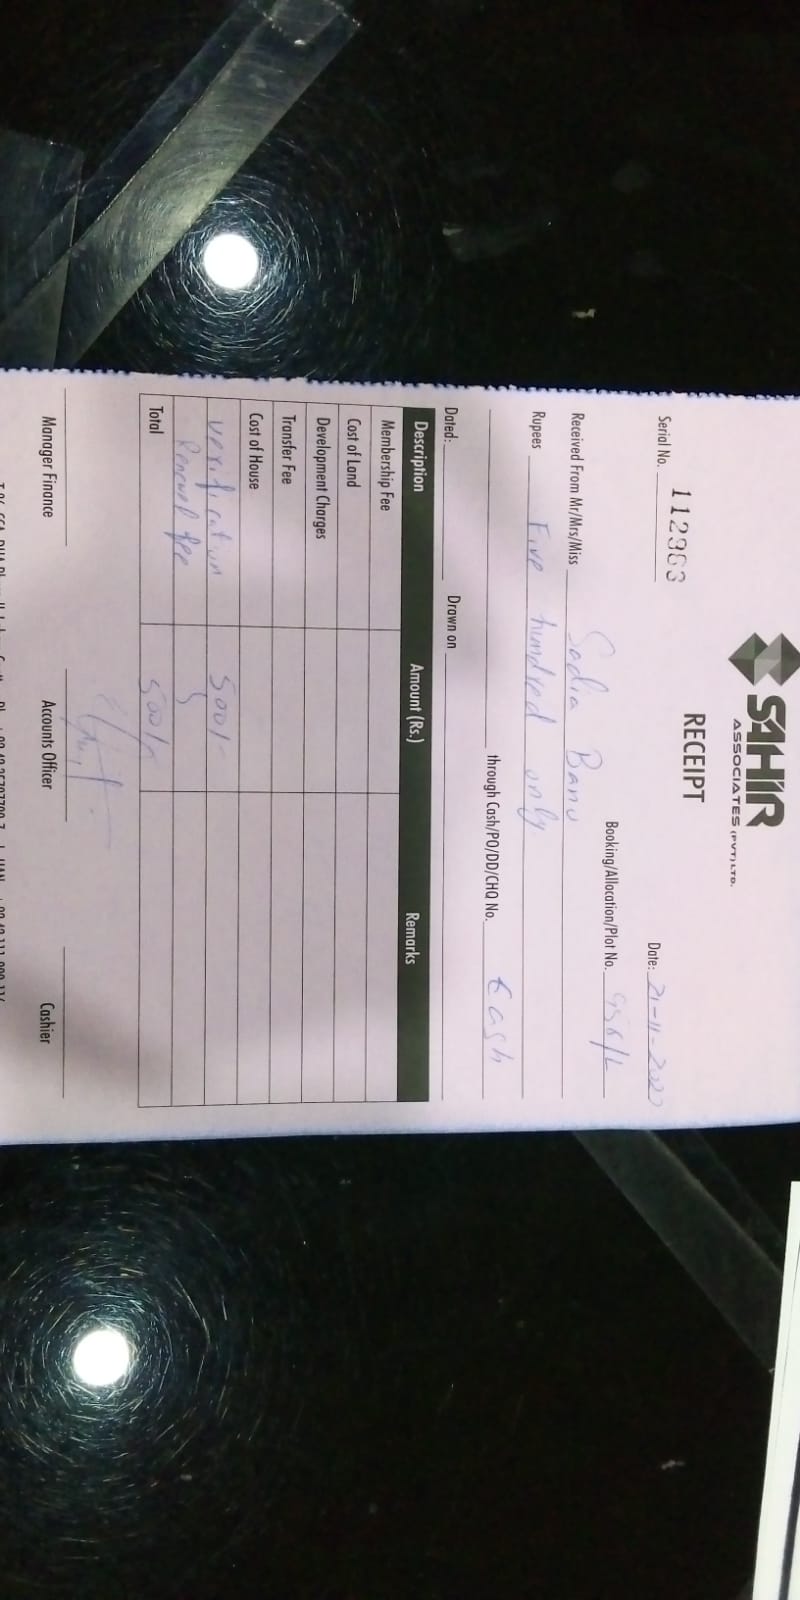 SAHIR
ASSOCIATES (PVT) LTD.
RECEIPT
Serial No. 112983 Date: 21-11-2022
Booking/Allocation/Plot No.
Received From Mr/Mrs/Miss Sadia Banu
Rupees Five hundred only
through Cash/PO/DD/CHQ No. Cash
Dated: Drawn on
Description Amount (Rs.) Remarks
Membership Fee
Cost of Land
Development Charges
Transfer Fee
Cost of House
verification 500/-
Renewal fee
Total 500/-
Manager Finance Accounts Officer Cashier